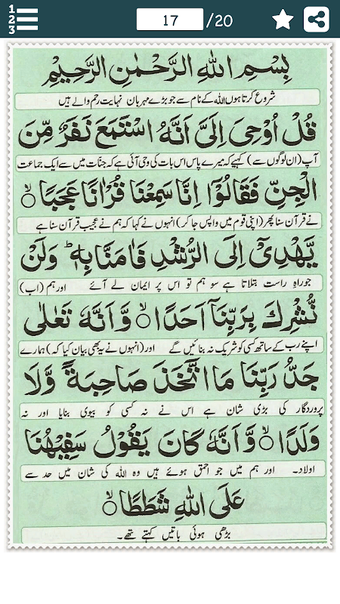 1 2 3 17 /20
بِسْمِ اللّٰهِ الرَّحْمٰنِ الرَّحِيْمِ
شروع کرتا ہوں اللہ کے نام سے جو بڑے مہربان نہایت رحم والے ہیں
قُلْ اُوْحِيَ اِلَيَّ اَنَّهُ اسْتَمَعَ نَفَرٌ مِّنَ
آپ (ان لوگوں سے) کہیے کہ میرے پاس اس بات کی وحی آئی ہے کہ جنات میں سے ایک جماعت
الْجِنِّ فَقَالُوْٓا اِنَّا سَمِعْنَا قُرْاٰنًا عَجَبًا ۙ
نے قرآن سنا پھر (اپنی قوم میں واپس جا کر) انہوں نے کہا کہ ہم نے عجیب قرآن سنا ہے
يَّهْدِيْٓ اِلَى الرُّشْدِ فَاٰمَنَّا بِهٖ ؕ وَلَنْ
جو راہ راست بتلاتا ہے سو ہم تو اس پر ایمان لے آئے اور ہم (اب)
نُّشْرِكَ بِرَبِّنَآ اَحَدًا ۙ وَّاَنَّهٗ تَعٰلٰى
اپنے رب کے ساتھ کسی کو شریک نہ بنائیں گے اور (انہوں نے یہ بھی بیان کیا کہ) ہمارے
جَدُّ رَبِّنَا مَا اتَّخَذَ صَاحِبَةً وَّلَا
پروردگار کی بڑی شان ہے اس نے نہ کسی کو بیوی بنایا اور نہ
وَلَدًا ۙ وَّاَنَّهٗ كَانَ يَقُوْلُ سَفِيْهُنَا
اولاد۔ اور ہم میں جو احمق ہوئے ہیں وہ اللہ کی شان میں حد سے
عَلَى اللّٰهِ شَطَطًا ۙ
بڑھی ہوئی باتیں کہتے تھے۔